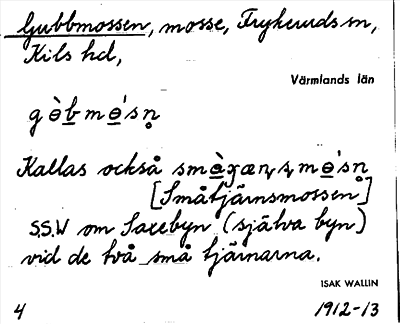 Gubbmossen, mosse, Frykeruds sn,
Kils hd,
Värmlands län
gɵ̀b mɵ́sn̥
Kallas också smɑ̀ɡæɳʂ mɵ́sn̥
[Småtjärnsmossen]
S.S.W om Saxebyn (själva byn)
vid de två små tjärnarna.
ISAK WALLIN
4 1912-13